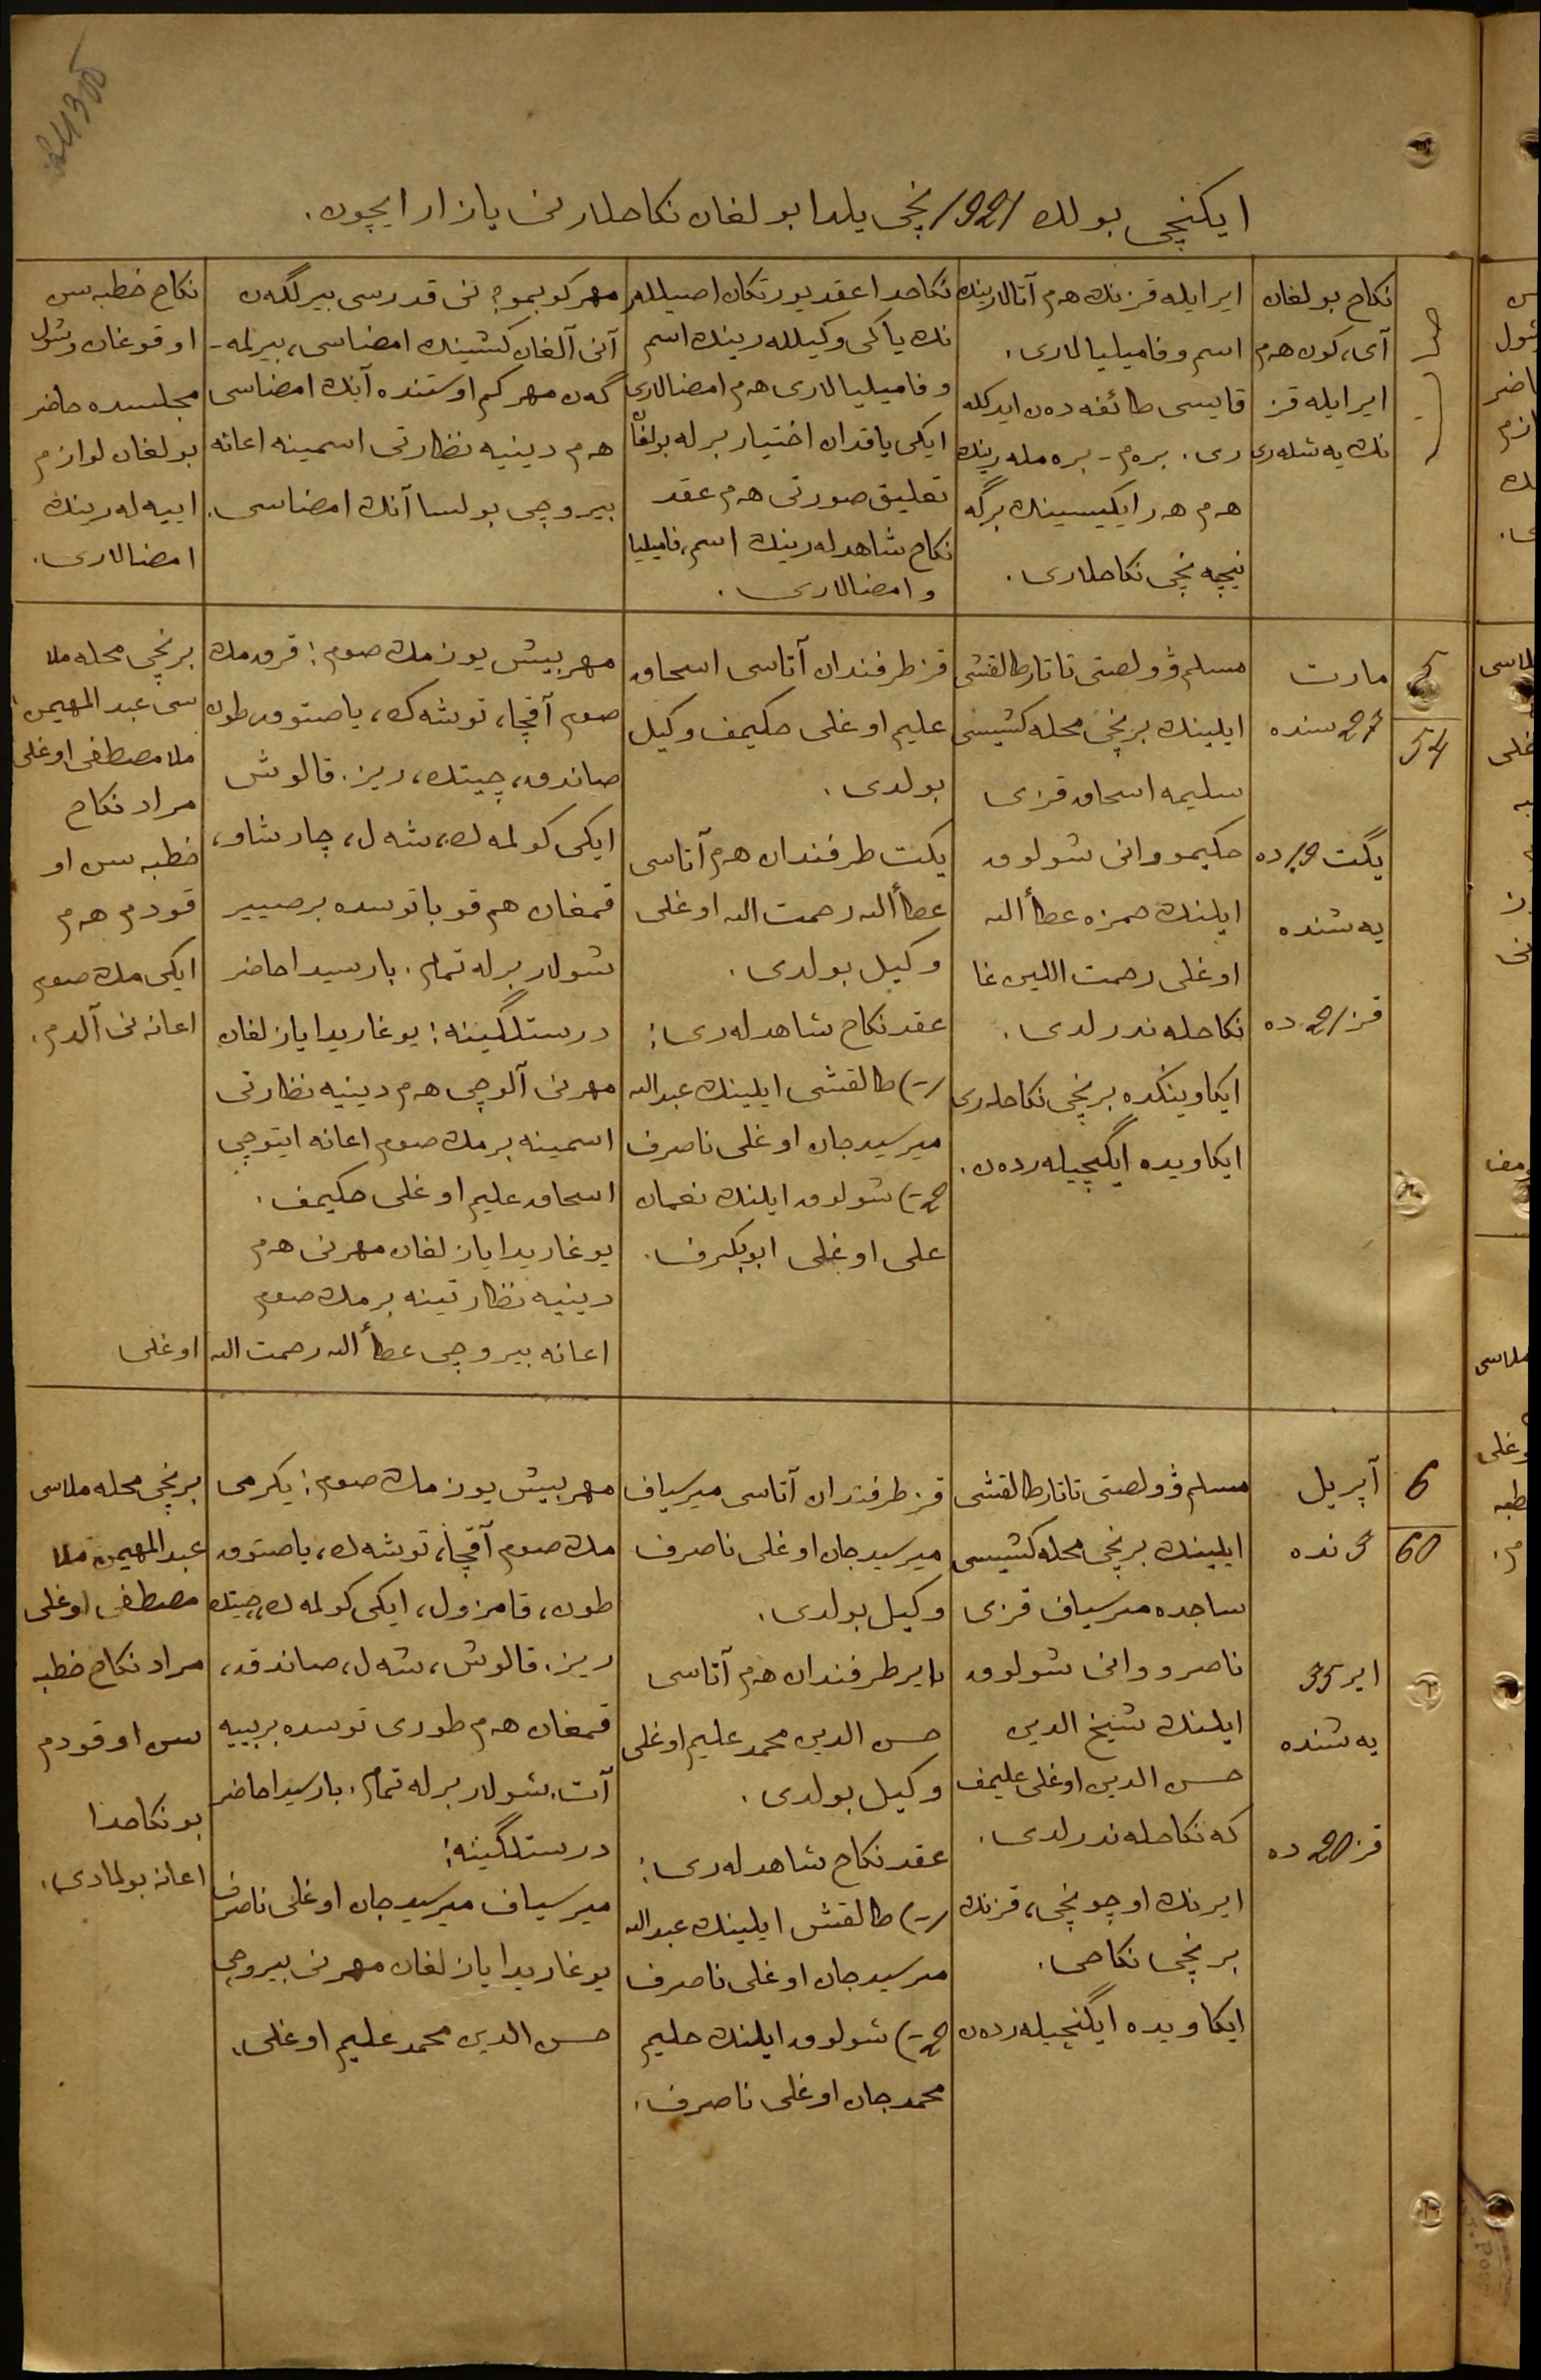 ایکنچی بولك 1921 نچی یلدا بولغان نکاحلارنی یازار ایچون.
نکاح بولغان
آی، کون هم
ایر ایله قز
نك یه شله ری
ایر ایله قزنك هم آتالارینك
اسم و فامیلیالاری.
قایسی طائفه دەن ایدکله
ری. برەم - برە مله رینك
هم هر ایکیسینك برگه
نیچه نچی نکاحلاری.
نکاحدا عقد یورتکان اصیللر
نك یاکی وکیلله رینك اسم
و فامیلیالاری هم امضالاری
ایکی یاقدان اختیار برله بولغان
تعلیق صورتی هم عقد
نکاح شاهدله رینك اسم، فامیلیا
و امضالاری.
مهر کوبمو؟ نی قدرسی بیرلگەن
آنی آلغان کشینك امضاسی، بیرلمه-
گەن مهر کم اوستنده آنك امضاسی
هم دینیه نظارتی اسمینه اعانه
بیروچی بولسا آنك امضاسی.
نکاح خطبه سن
اوقوغان وشول
مجلسده حاضر
بولغان لوازم
اییه له رینك
امضالاری.
5
54
مارت
27 سنده
یگت 19 ده
یه شنده
قز 21 ده
مسلم ڤولصتی تاتار طالقشی
ایلینك برنچی محله کشیسی
سلیمه اسحاق قزی
حکیمووانی شولوق
ایلنك حمزه عطأالله
اوغلی رحمت اللین غا
نکاحله ندرلدی.
ایکاوینکده برنچی نکاحلری
ایکاویده ایگنچیله ردەن.
قز طرفندان آتاسی اسحاق
علیم اوغلی حکیمف وکیل
بولدی.
یکت طرفندان هم آتاسی
عطأالله رحمت الله اوغلی
وکیل بولدی.
عقد نکاح شاهدله ری:
1-) طالقشی ایلینك عبدالله
میرسیدجان اوغلی ناصرف
2-) شولوق ایلنك نعمان
علی اوغلی ابوبکرف.
مهر بیش یوز مك صوم: قرق مك
صوم آقچا، توشه ك، یاصتوق، طون
صاندق، چیتك، ریز. قالوش
ایکی کولمه ك، شه ل، چارشاو،
قمغان هم قوبا توسده بر صییر
شولار برله تمام. بارسیدا حاضر
درستلگینه: یوغاریدا یازلغان
مهرنی آلوچی هم دینیه نظارتی
اسمینه بر مك صوم اعانه ایتوچی
اسحاق علیم اوغلی حکیمف.
یوغاریدا یازلغان مهرنی هم
دینیه نظارتینه بر مك صوم
اعانه بیروچی عطأالله رحمت الله اوغلی
برنچی محله ملا
سی عبد المهیمن
ملا مصطفی اوغلی
مراد نکاح
خطبه سن او
قودم هم
ایکی مك صوم
اعانه نی آلدم.
6
60
آپریل
3 نده
ایر 35
یه شنده
قز 20 ده
مسلم ڤولصتی تاتار طالقشی
ایلینك برنچی محله کشیسی
ساجده میرسیاف قزی
ناصرووانی شولوق
ایلنك شیخ الدین
حسن الدین اوغلی علیمف
که نکاحله ندرلدی.
ایرنك اوچونچی، قزنك
برنچی نکاحی.
ایکاویده ایگنچیله ردەن
قز طرفندان آتاسی میرسیاف
میرسیدجان اوغلی ناصرف
وکیل بولدی.
ایر طرفندان هم آتاسی
حسن الدین محمد علیم اوغلی
وکیل بولدی.
عقد نکاح شاهدله ری:
1-) طالقش ایلینك عبدالله
میرسیدجان اوغلی ناصرف
2-) شولوق ایلنك حلیم
محمدجان اوغلی ناصرف.
مهر بیش یوز مك صوم: یکرمی
مك صوم آقچا، توشه ك، یاصتوق
طون، قامزول، ایکی کولمه ك، چیتك
ریز. قالوش، شه ل، صاندق،
قمغان هم طوری توسده بر بییه
آت. شولار برله تمام. بارسیدا حاضر
درستلگینه:
میرسیاف میرسیدجان اوغلی ناصرف
یوغاریدا یازلغان مهرنی بیروچی
حسن الدین محمد علیم اوغلی.
برنچی محله ملاسی
عبد المهیمن ملا
مصطفی اوغلی
مراد نکاح خطبه
سن اوقودم
بو نکاحدا
اعانه بولمادی.